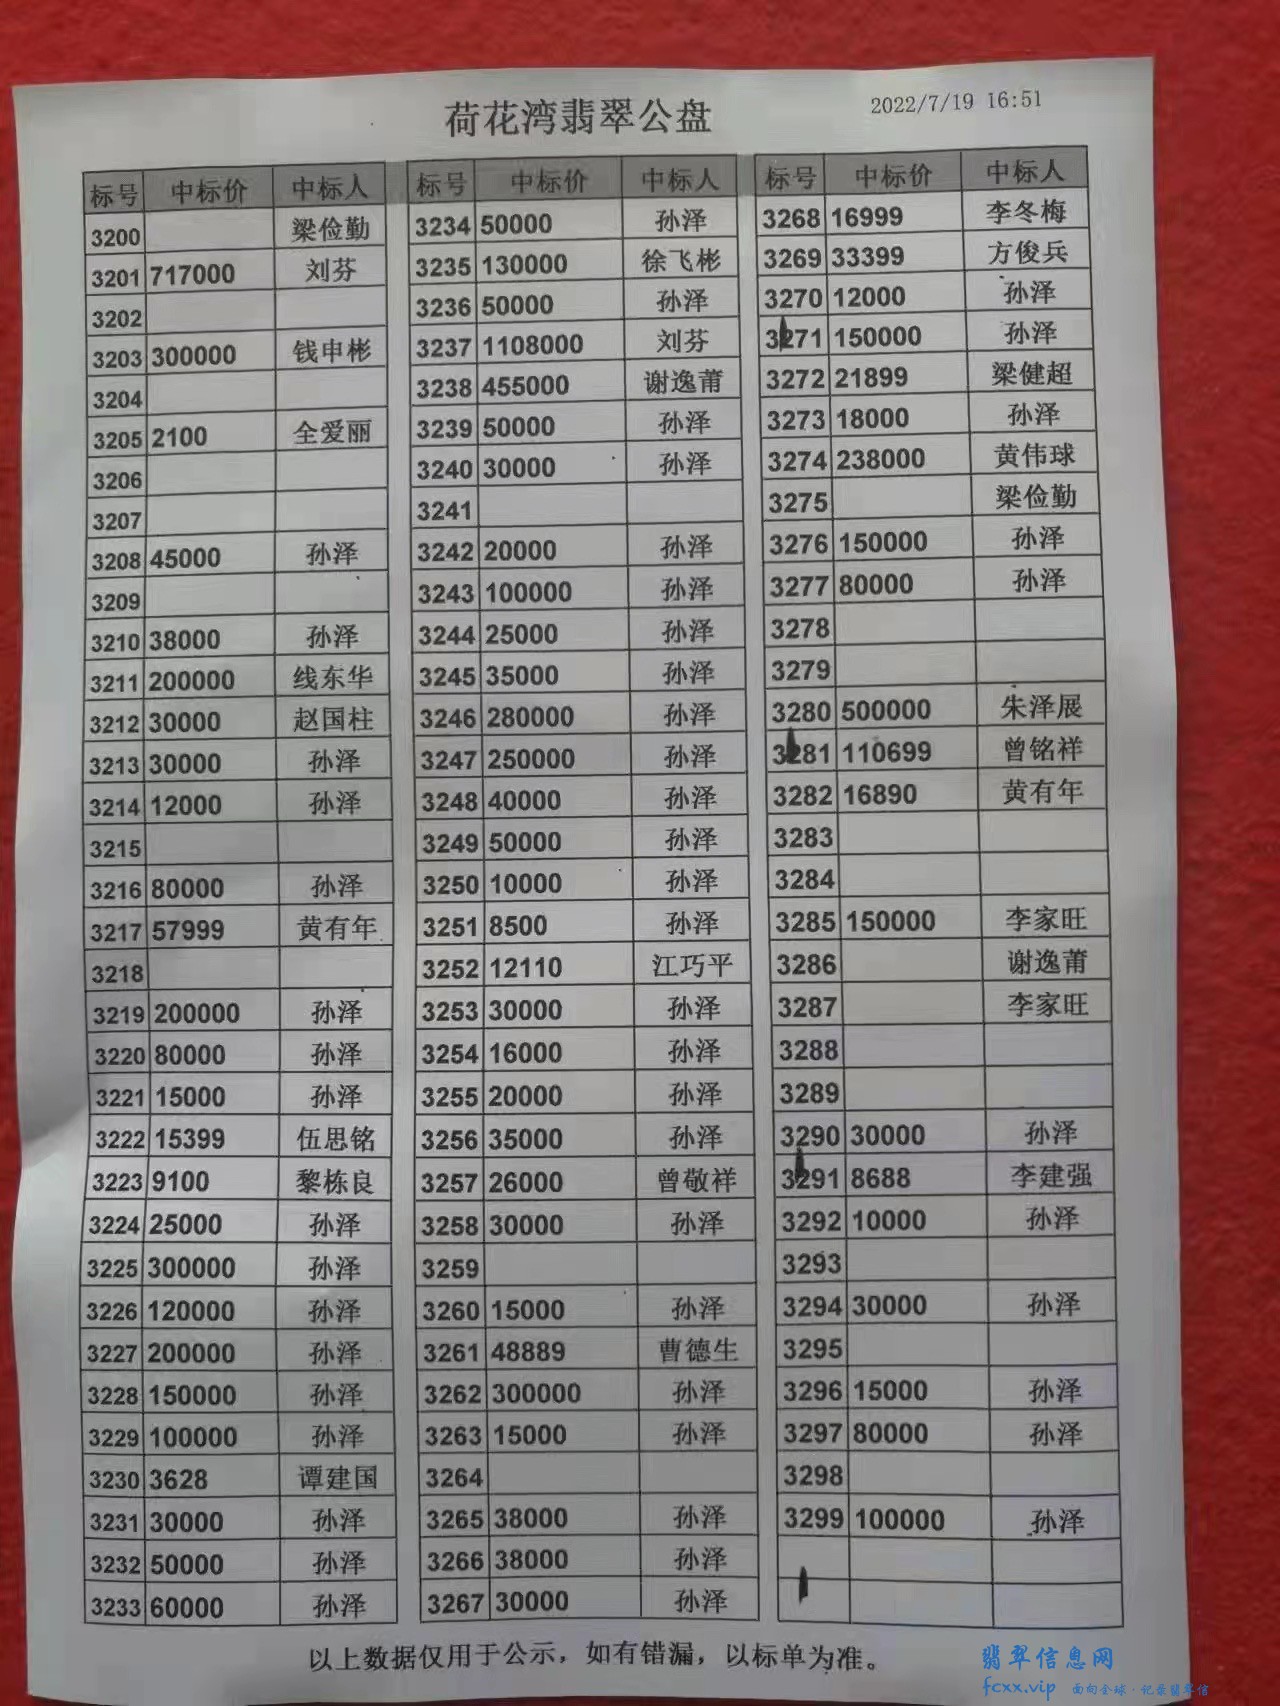 荷花湾翡翠公盘
2022/7/19 16:51
标号 中标价 中标人 标号 中标价 中标人 标号 中标价 中标人
3200 梁俭勤 3234 50000 孙泽 3268 16999 李冬梅
3201 717000 刘芬 3235 130000 徐飞彬 3269 33399 方俊兵
3202 3236 50000 孙泽 3270 12000 孙泽
3203 300000 钱申彬 3237 1108000 刘芬 3271 150000 孙泽
3204 3238 455000 谢逸莆 3272 21899 梁健超
3205 2100 全爱丽 3239 50000 孙泽 3273 18000 孙泽
3206 3240 30000 孙泽 3274 238000 黄伟球
3207 3241 3275 梁俭勤
3208 45000 孙泽 3242 20000 孙泽 3276 150000 孙泽
3209 3243 100000 孙泽 3277 80000 孙泽
3210 38000 孙泽 3244 25000 孙泽 3278
3211 200000 线东华 3245 35000 孙泽 3279
3212 30000 赵国柱 3246 280000 孙泽 3280 500000 朱泽展
3213 30000 孙泽 3247 250000 孙泽 3281 110699 曾铭祥
3214 12000 孙泽 3248 40000 孙泽 3282 16890 黄有年
3215 3249 50000 孙泽 3283
3216 80000 孙泽 3250 10000 孙泽 3284
3217 57999 黄有年 3251 8500 孙泽 3285 150000 李家旺
3218 3252 12110 江巧平 3286 谢逸莆
3219 200000 孙泽 3253 30000 孙泽 3287 李家旺
3220 80000 孙泽 3254 16000 孙泽 3288
3221 15000 孙泽 3255 20000 孙泽 3289
3222 15399 伍思铭 3256 35000 孙泽 3290 30000 孙泽
3223 9100 黎栋良 3257 26000 曾敬祥 3291 8688 李建强
3224 25000 孙泽 3258 30000 孙泽 3292 10000 孙泽
3225 300000 孙泽 3259 3293
3226 120000 孙泽 3260 15000 孙泽 3294 30000 孙泽
3227 200000 孙泽 3261 48889 曹德生 3295
3228 150000 孙泽 3262 300000 孙泽 3296 15000 孙泽
3229 100000 孙泽 3263 15000 孙泽 3297 80000 孙泽
3230 3628 谭建国 3264 3298
3231 30000 孙泽 3265 38000 孙泽 3299 100000 孙泽
3232 50000 孙泽 3266 38000 孙泽
3233 60000 孙泽 3267 30000 孙泽
以上数据仅用于公示，如有错漏，以标单为准。
翡翠信息网
fcxx.vip 面向全球·记录翡翠信